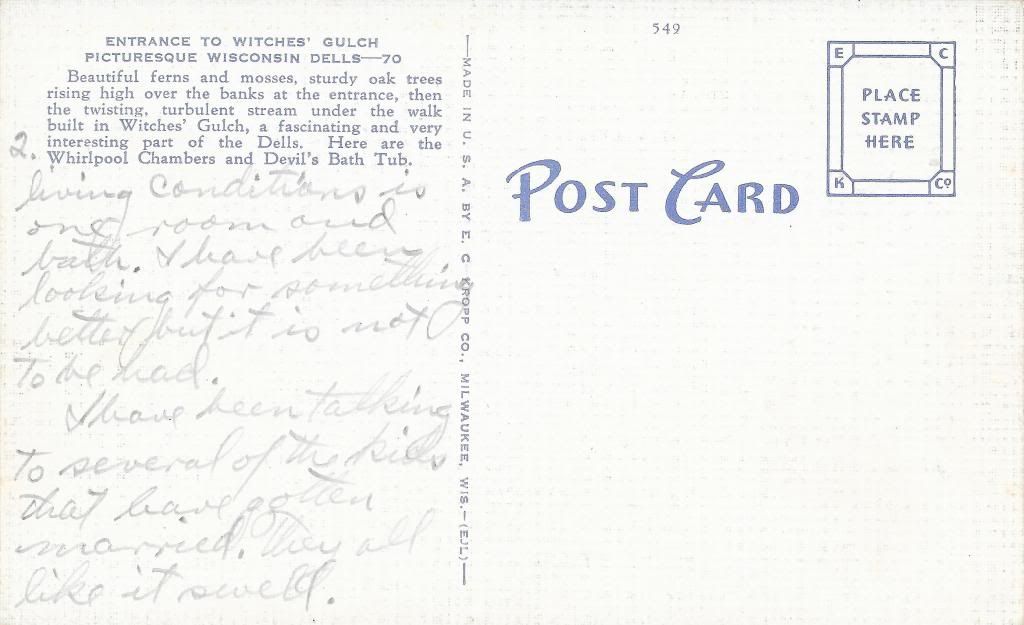 549
ENTRANCE TO WITCHES' GULCH
PICTURESQUE WISCONSIN DELLS—70
Beautiful ferns and mosses, sturdy oak trees
rising high over the banks at the entrance, then
the twisting, turbulent stream under the walk
built in Witches' Gulch, a fascinating and very
interesting part of the Dells. Here are the
Whirlpool Chambers and Devil's Bath Tub.
2.
living conditions is
one room and
bath. I have been
looking for something
better but it is not
to be had.
I have been talking
to several of the kids
that have gotten
married. They all
like it swell.
—MADE IN U. S. A. BY E. C. KROPP CO., MILWAUKEE, WIS.—(EJL)—
POST CARD
E C
PLACE
STAMP
HERE
K Co